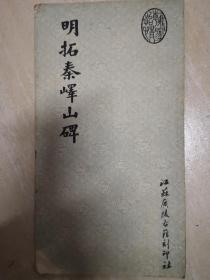 明拓秦嶧山碑
江苏廣陵古籍刻印社